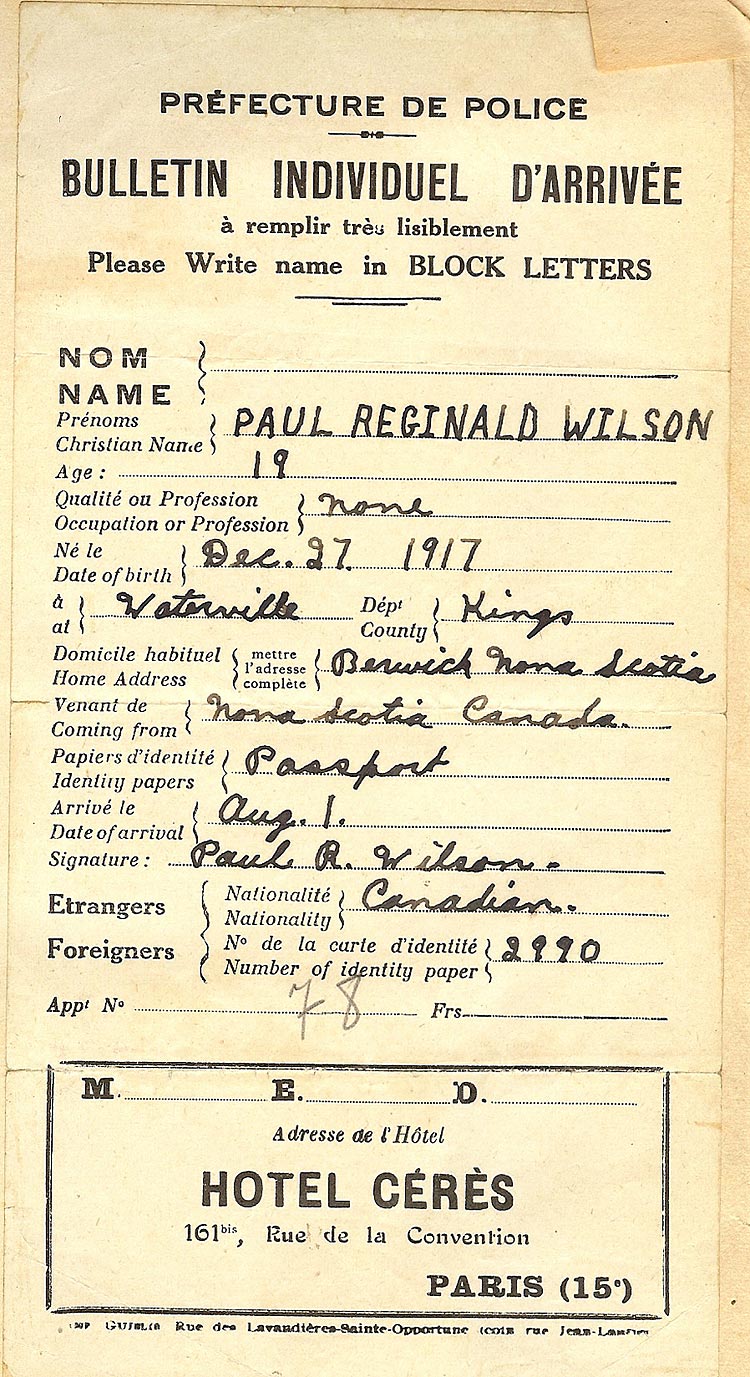 PRÉFECTURE DE POLICE
BULLETIN INDIVIDUEL D'ARRIVÉE
à remplir très lisiblement
Please Write name in BLOCK LETTERS
NOM
NAME
Prénoms
Christian Name PAUL REGINALD WILSON
Age : 19
Qualité ou Profession
Occupation or Profession none
Né le
Date of birth Dec. 27. 1917
à
at Waterville Dépt
County Kings
Domicile habituel
Home Address mettre
l'adresse
complète Berwick Nova Scotia
Venant de
Coming from Nova Scotia Canada.
Papiers d'identité
Identity papers Passport
Arrivé le
Date of arrival Aug. 1.
Signature : Paul R. Wilson.
Etrangers
Foreigners
Nationalité
Nationality Canadian.
No de la carte d'identité
Number of identity paper 2990
Appt No 78 Frs
M. E. D.
Adresse de l'Hôtel
HOTEL CÉRÈS
161bis, Rue de la Convention
PARIS (15e)
Rue des Lavandières-Sainte-Opportune (coin rue